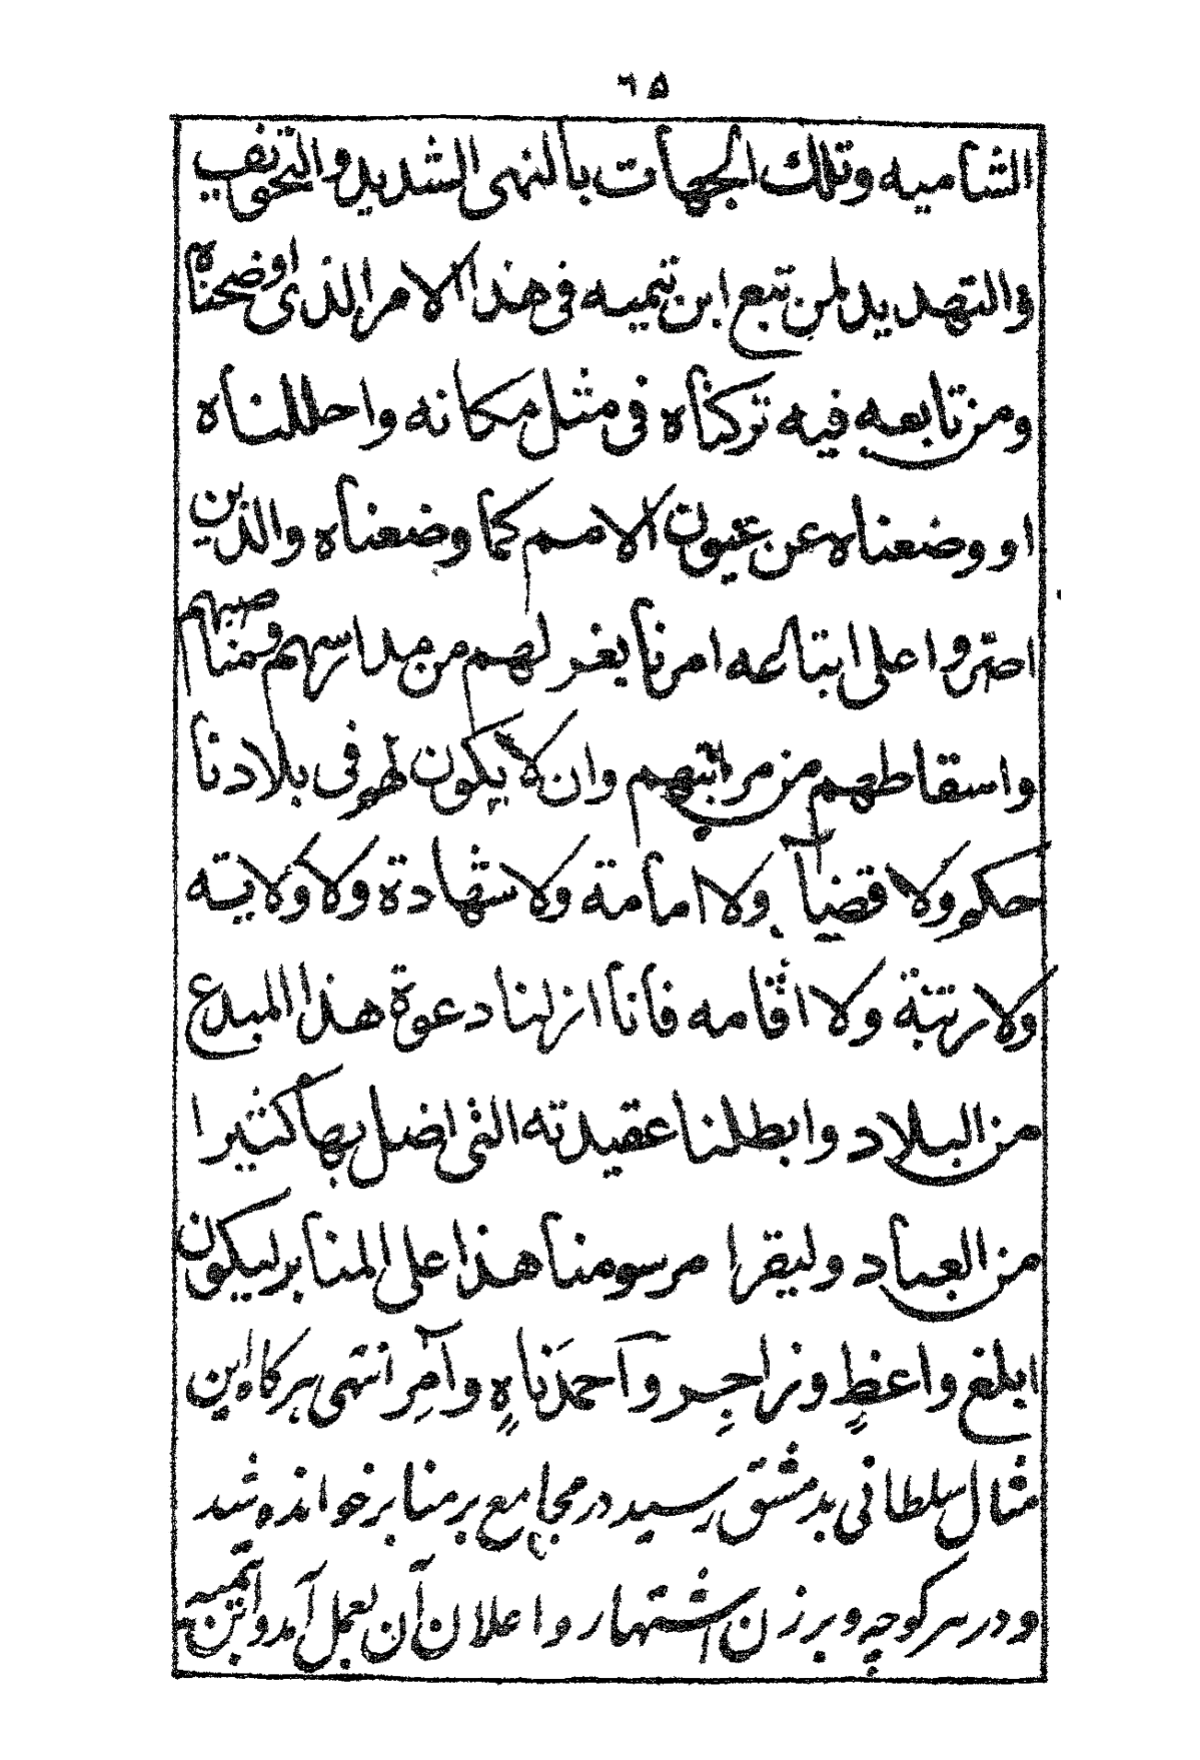 ٦٥
الشاميه وتلك الجهات بالنهى الشديد والتخويف
والتهديد لمن تبع ابن تيميه فى هذا الامر الذى اوضحناه
ومن تابعه فيه تركناه فى مثل مكانه واحللناه
او وضعناه عن عيون الامم كما وضعناه والذين
اصروا على امرنا بغر لهم من مدارسهم ومناصبهم
واسقاطهم من مراتبهم وان لا يكون لهم فى بلادنا
حكم ولا قضيا ولا امامة ولا شهادة ولا ولايته
ولا رتبة ولا اقامه فانا ازلنا دعوة هذا المبدع
من البلاد وابطلنا عقيدته التى اضل بها كثيرا
من العباد وليقرا مرسومنا هذا على المنابر ليكون
ابلغ واعظٍ وزاجِر وآحمدَناهٍ وآمِر انتهى هركاه اين
مثال سلطانى بدمشق رسيد در مجامع بر منابر خوانده شد
ودر هر كوچه وبرزن اشتهار واعلان آن بعمل آمد وابن تيميه